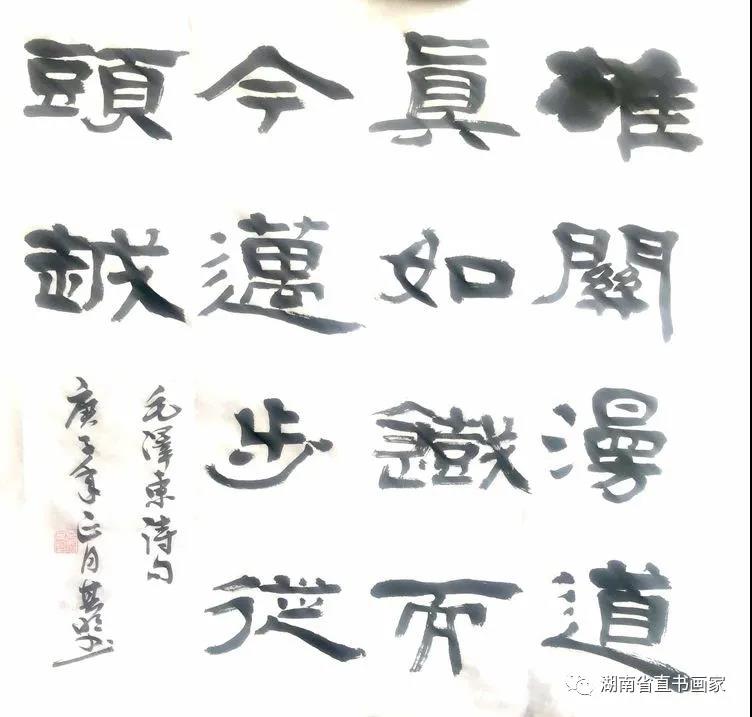 雄關漫道
眞如鐵而
今邁步從
頭越
毛澤東詩句
庚子年正月
湖南省直书画家